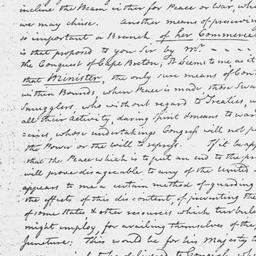 incline the Beam either for Peace or War, wh
we may chuse. Another means of preservin
so important a Branch of her Commerce
is that proposed to you Sir by Mr.
the Conquest of Cape Breton. It seems to me as it
that Minister, the only sure means of Con
within Bounds, when Peace is made those Swa
Smugglers, who without regard to Treaties, w
all their activity, daring Spirit & means to war
whose undertakings Congress will not
the Power or the will to repress. If it be app
that the Peace which is to put an end to the pre
will prove disagreeable to any of the United
appears to me a certain method of guarding
the effects of this discontent, of preventing the
of some States & other resources which turbul
might employ, for availing themselves of the
Juncture: This would be for his Majesty t